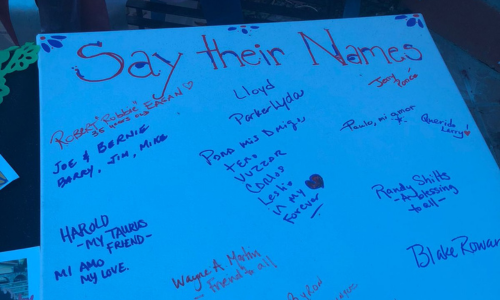 Say their Names
ROBERT "Robbie"
EAGAN
JOE & BERNIE
BARRY, JIM, MIKE
HAROLD
-MY TAURUS
FRIEND-
MI AMO
MY LOVE.
Lloyd
Parker Lyda
PARA MIS Amigu
Carlos
Leslie
in my
Forever
Wayne A Martin
Friend to all
Joey
Paulo, mi amor
Querido
Larry
Randy Shilts
-A blessing
to all-
Blake Rowan